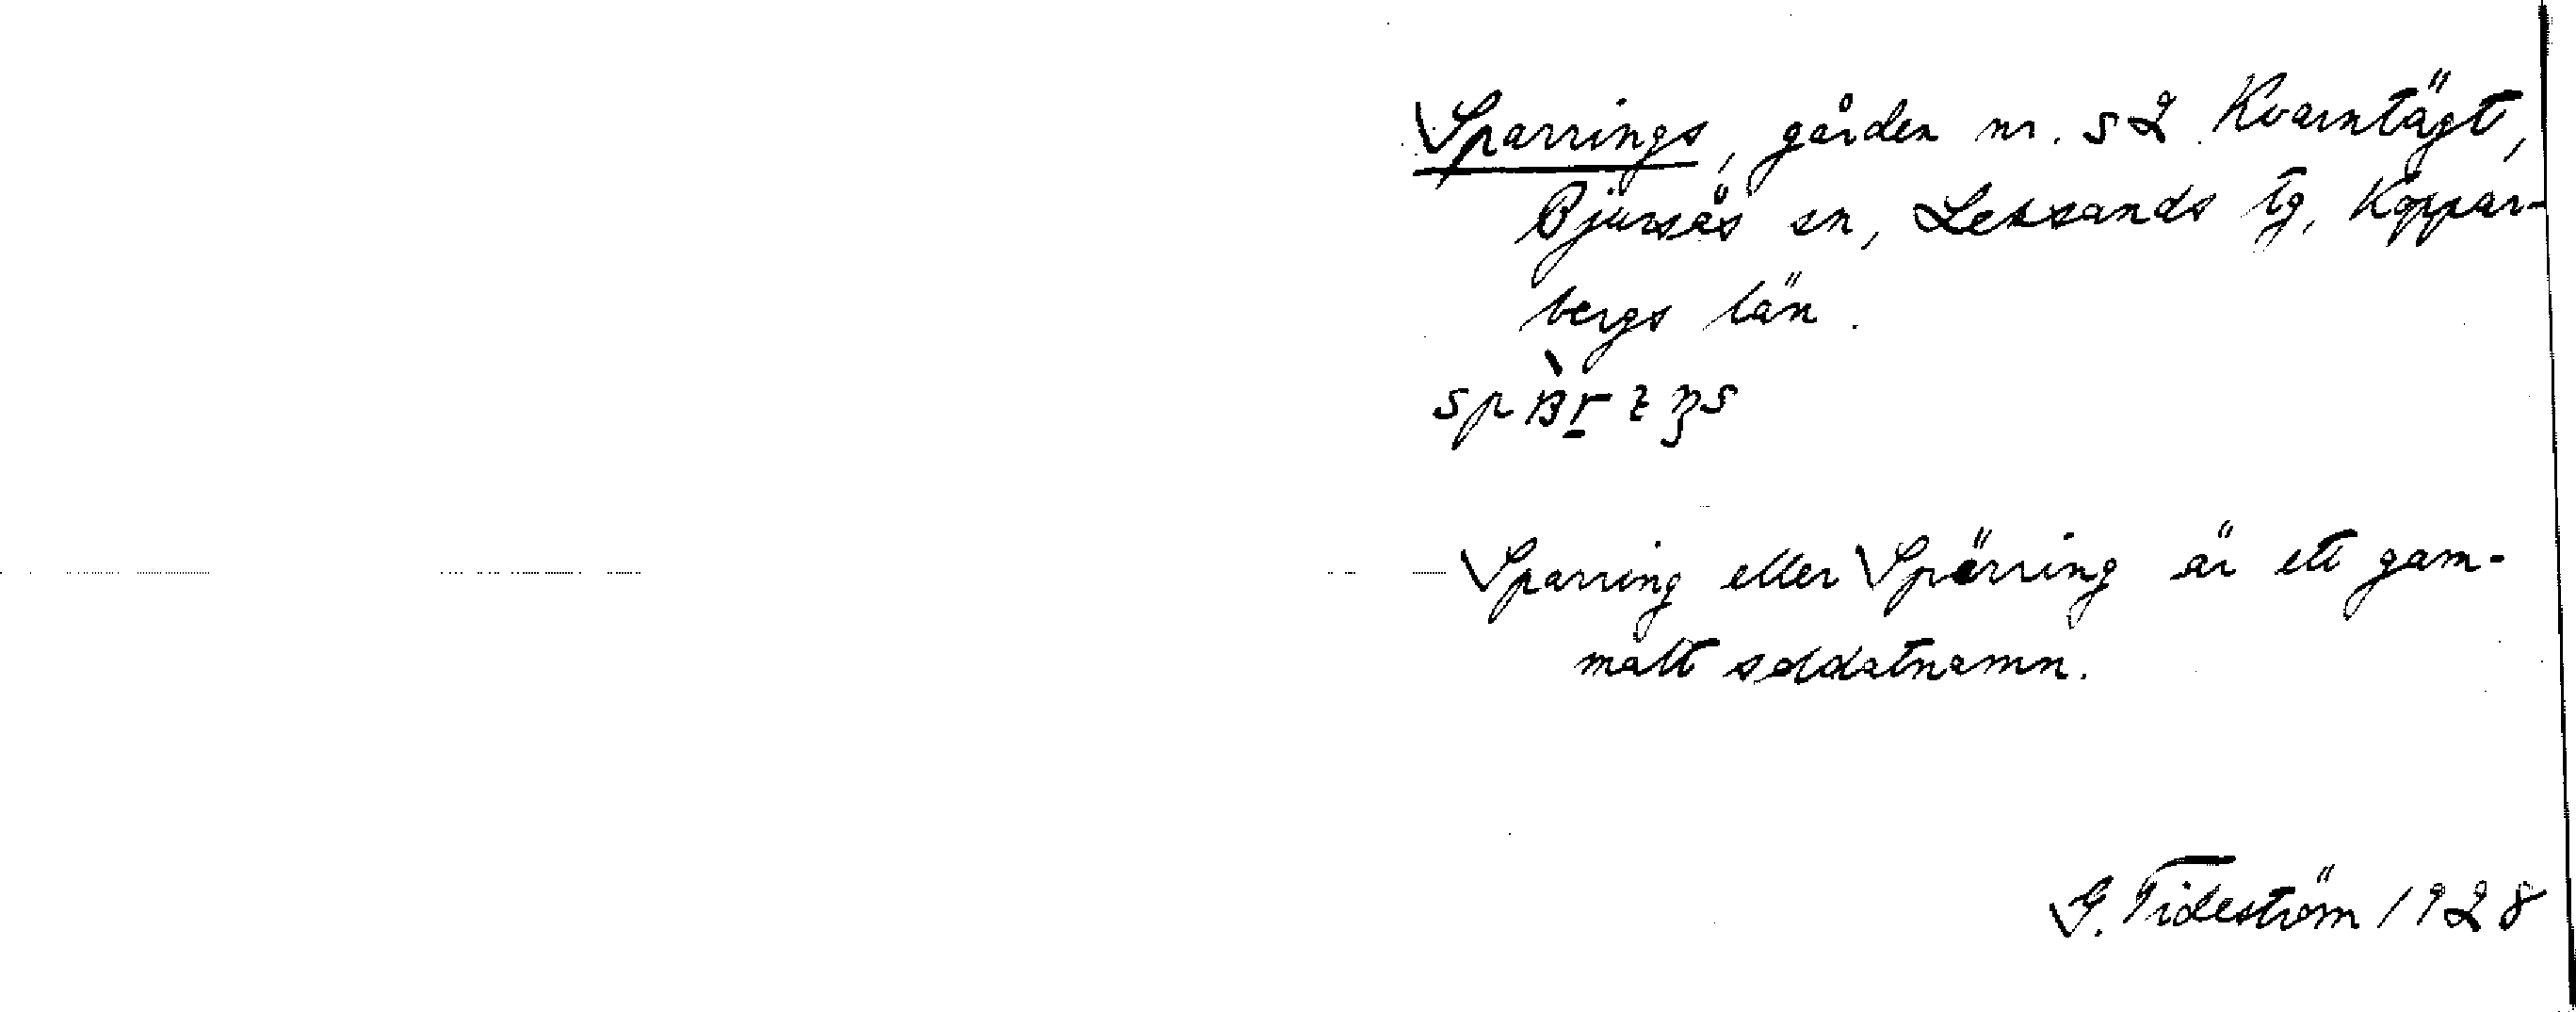 Sparrings, gården nr. 52 Kvarntägt,
Bjursås sn, Leksands tg, Koppar-
bergs län.
Sparring eller Spärring är ett gam-
malt soldatnamn.
G. Tideström 1928